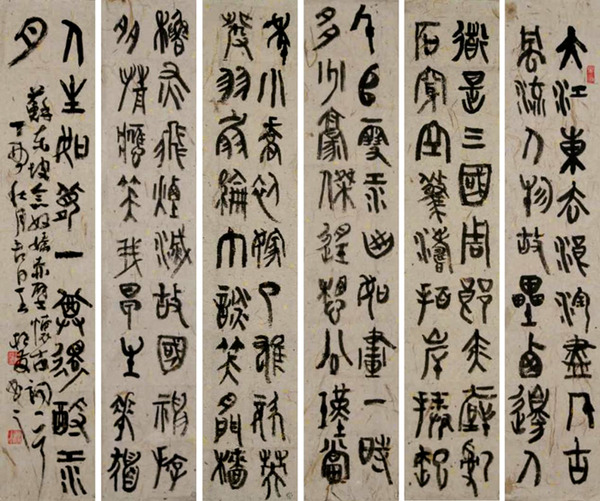 大江東去浪淘盡千古
風流人物故壘西邊人
道是三國周郎赤壁亂
石穿空驚濤拍岸捲起
千堆雪江山如畫一時
多少豪傑遙想公瑾當
年小喬初嫁了雄姿英
發羽扇綸巾談笑間檣
櫓灰飛煙滅故國神游
多情應笑我早生華髮
人生如夢一尊還酹江
月
蘇東坡念奴嬌赤壁懷古詞一首